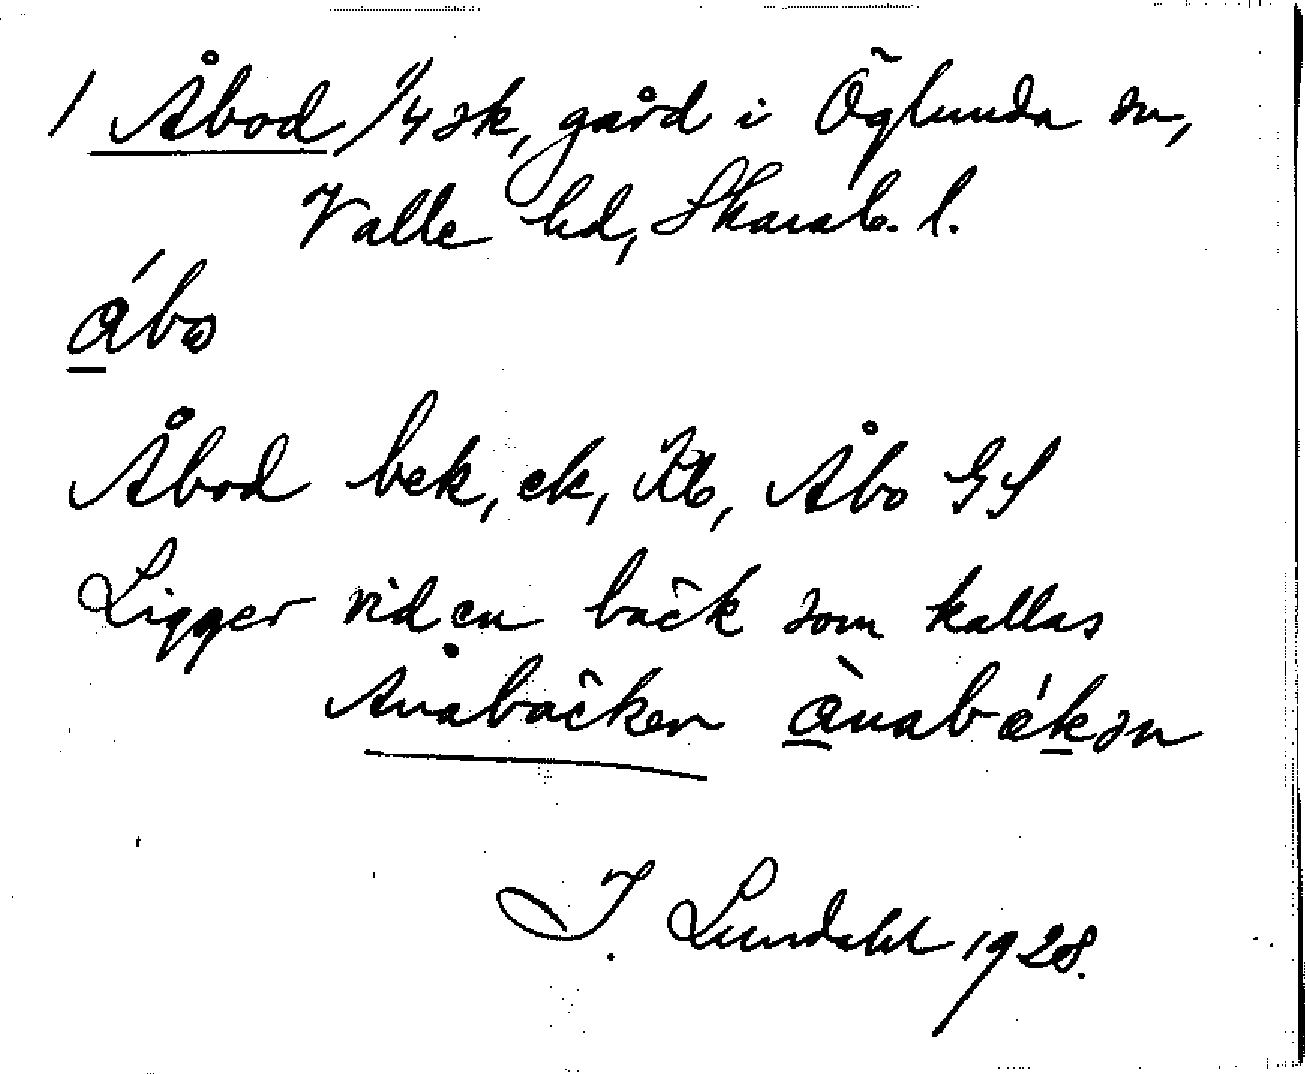 1 Åbod 1/4 sk, gård i Öglunda sn,
Valle hd, Skarab. l.
ábo
Åbod bek, ek, Kb, Åbo GS
Ligger vid en bäck som kallas
Ånabäcken ànabákən
I. Lundahl 1928.